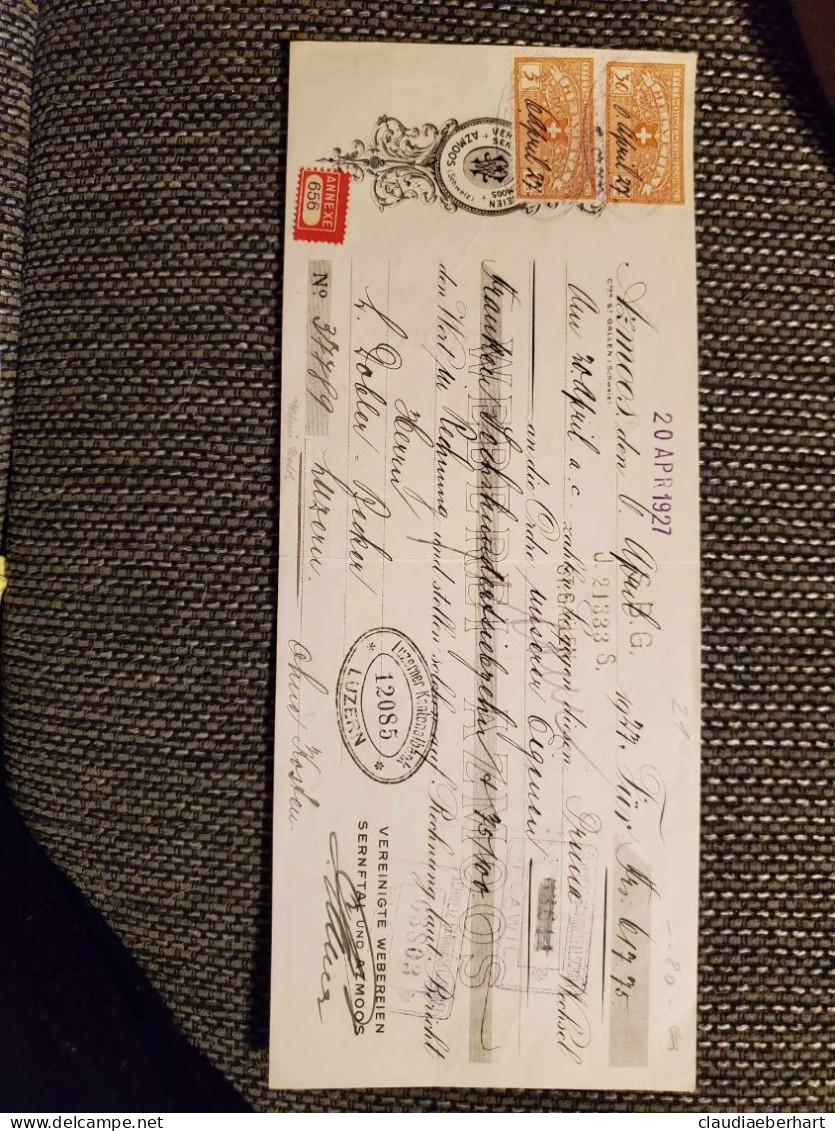 5
6 April 27.
30
6. April 27.
AZMOOS (Schweiz)
ANNEXE
656
20 APR 1927
Azmoos, den 6. April 1927. Für Frs. 617.75.
CTON ST GALLEN (Schweiz)
J. 21333 S.
Am 20. April a. c. zahlen Sie gegen diesen Prima Wechsel
an die Ordre unserer Eigenen
WEBEREI AZMOOS
Franken Sechshundertsiebzehn & 75/100
den Wert in Rechnung und stellen solchen auf Rechnung laut Bericht
Herrn
Luzerner Kantonalbank
12085
LUZERN
VEREINIGTE WEBEREIEN
SERNFTAL UND AZMOOS
No. 37789
Luzern.
Ohne Kosten.
claudiaeberhart